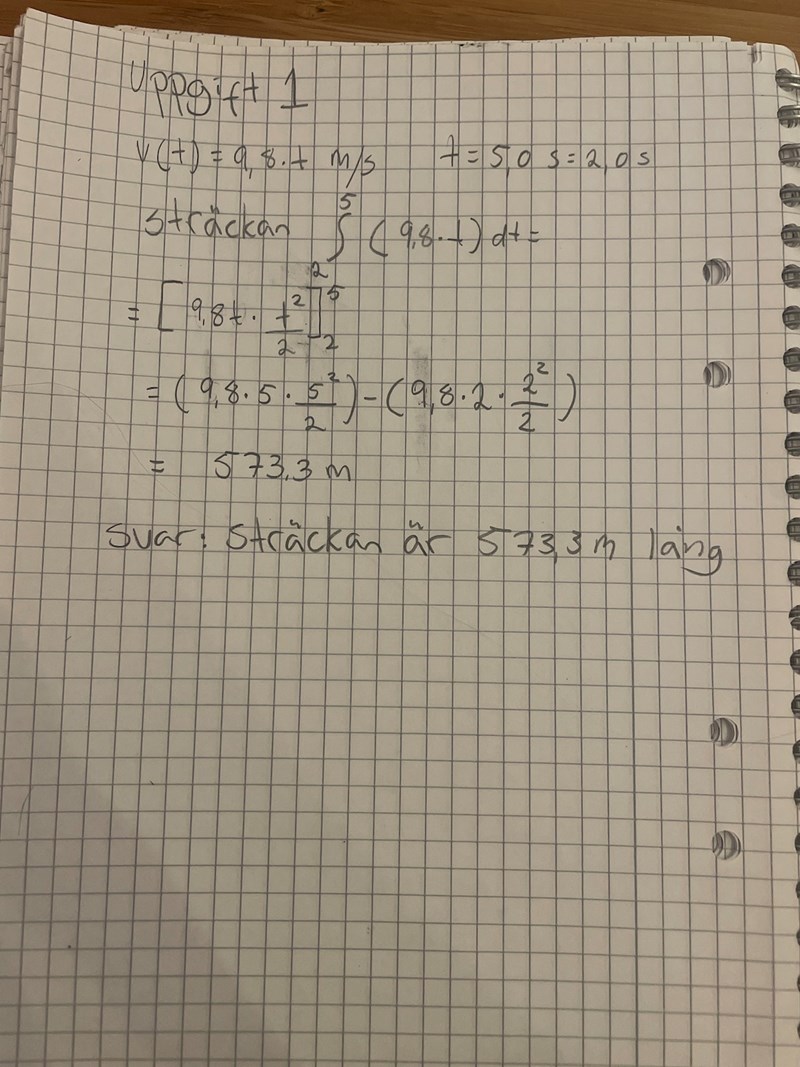 Uppgift 1
V(t) = 9,8·t m/s t = 5,0 s = 2,0 s
sträckan ∫₂⁵ (9,8·t) dt =
= [9,8t · t²/2]₂⁵
= (9,8·5·5²/2) - (9,8·2·2²/2)
= 573,3 m
Svar: Sträckan är 573,3 m lång